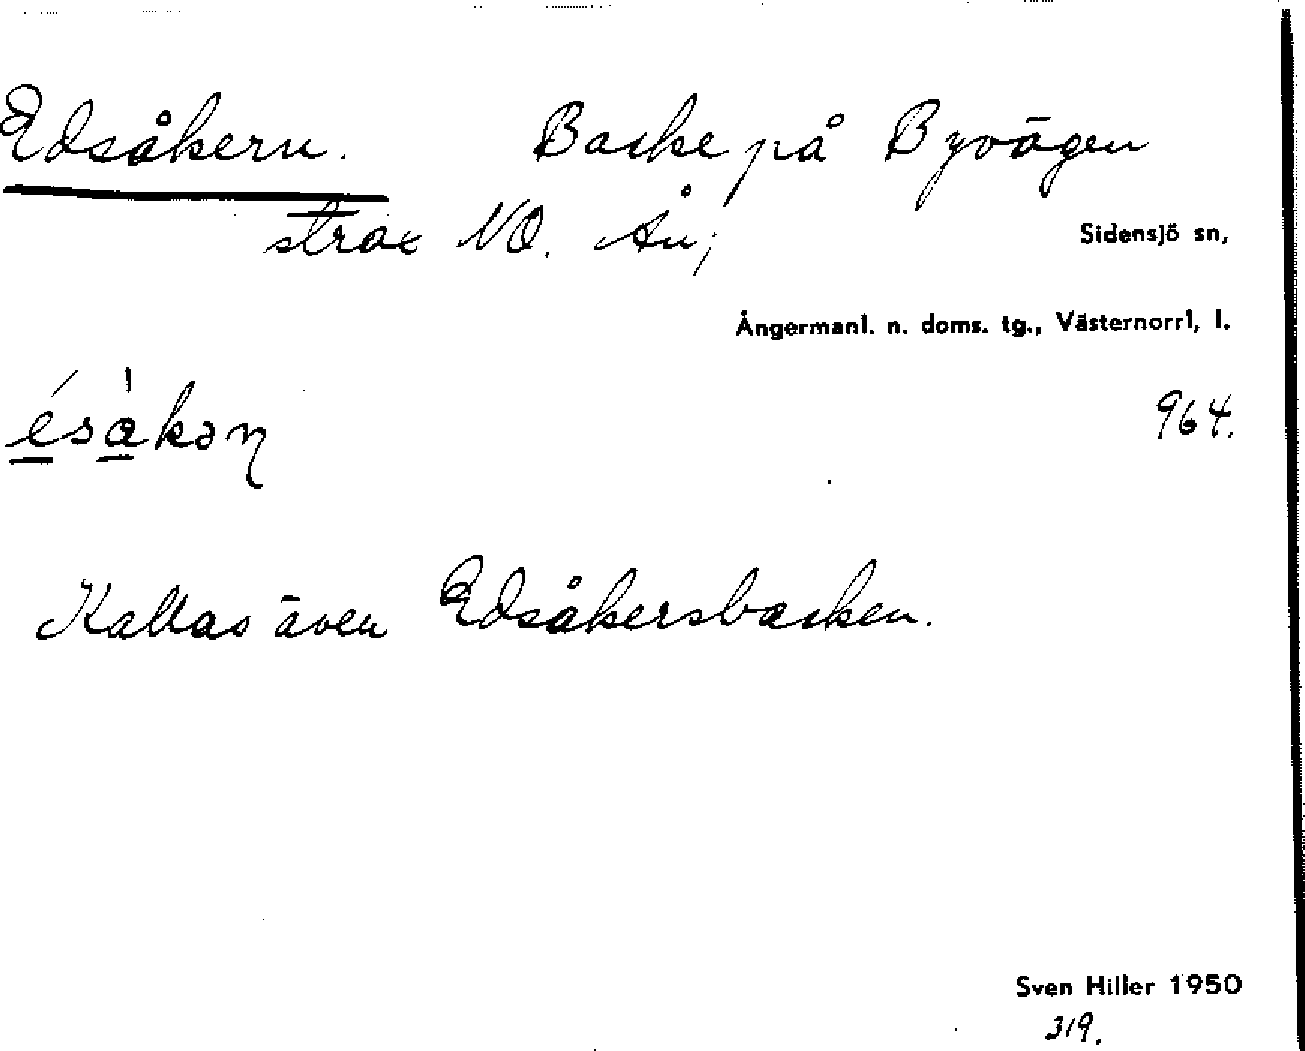 Edsåkern. Backe på Byvägen
strax NO. Ån;
Sidensjö sn,
Ångermanl. n. doms. tg., Västernorrl, l.
964.
Kallas även Edsåkersbacken.
Sven Hiller 1950
319.